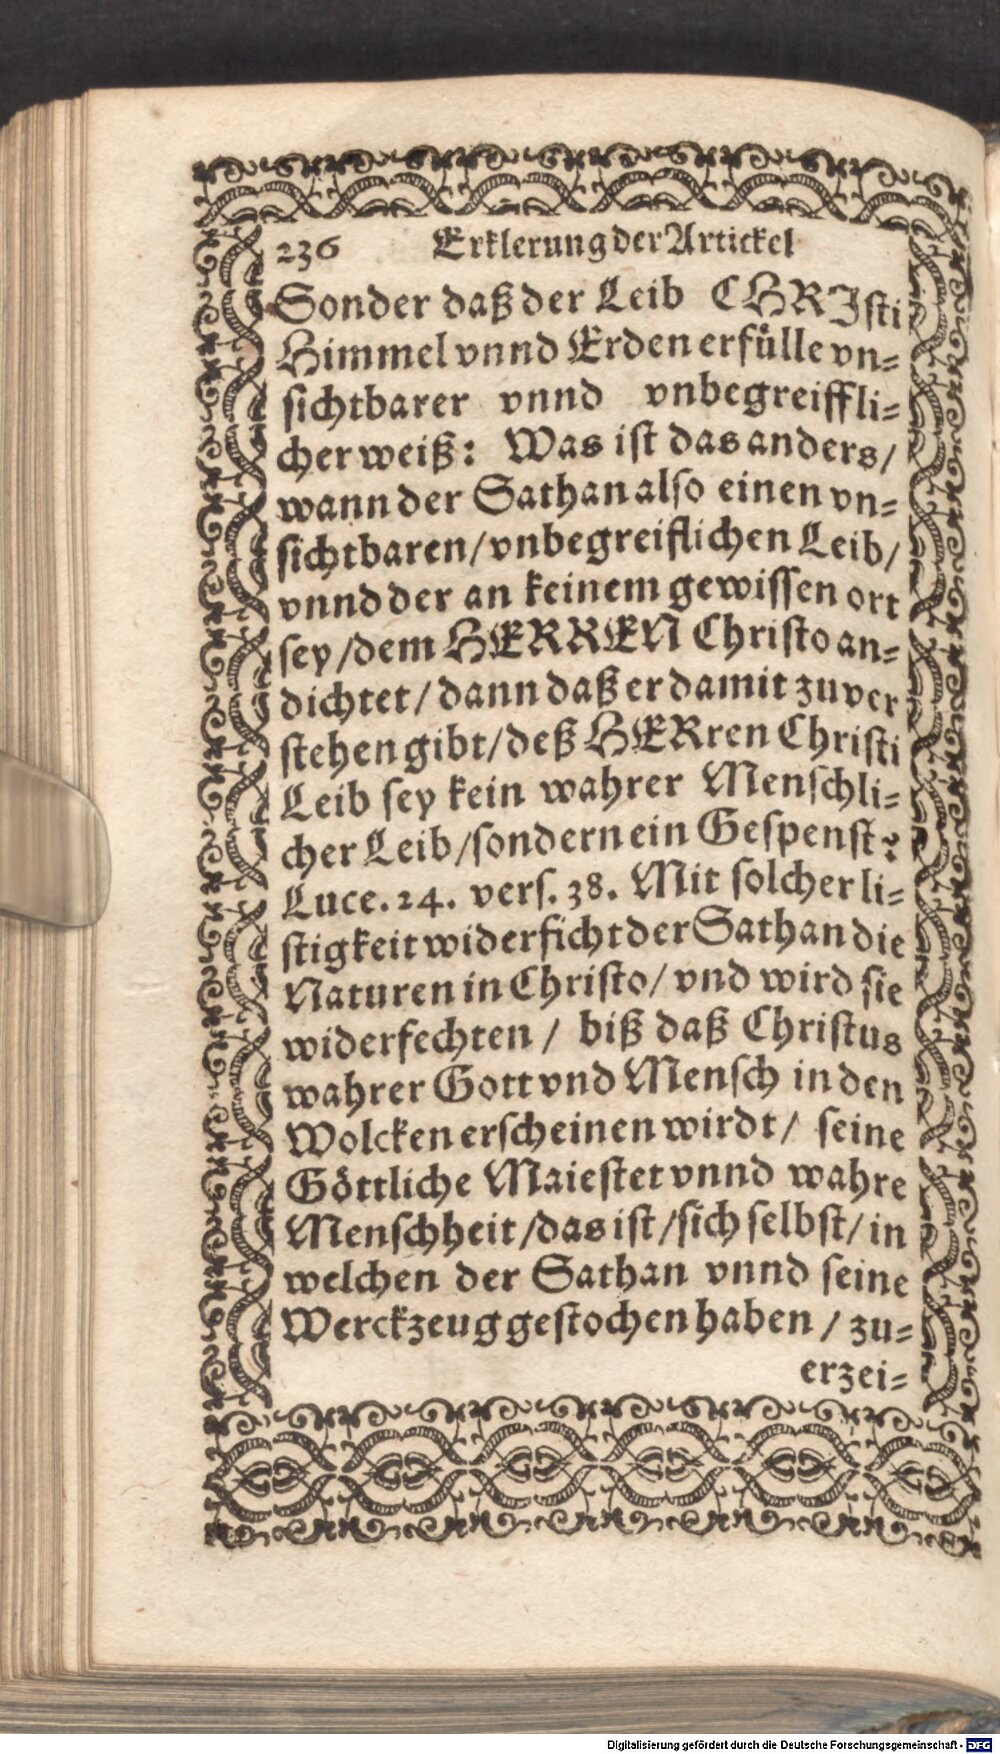 236 Erklerung der Artickel
Sonder daß der Leib CHRJsti
Himmel vnnd Erden erfülle vn=
sichtbarer vnnd vnbegreiffli=
cher weiß: Was ist das anders/
wann der Sathan also einen vn=
sichtbaren/vnbegreiflichen Leib/
vnnd der an keinem gewissen ort
sey/dem HERREN Christo an=
dichtet/ dann daß er damit zuver
stehen gibt/deß HERren Christi
Leib sey kein wahrer Menschli=
cher Leib/sondern ein Gespenst?
Luce. 24. vers. 38. Mit solcher li=
stigkeit widerficht der Sathan die
Naturen in Christo/ vnd wird sie
widerfechten / biß daß Christus
wahrer Gott vnd Mensch in den
Wolcken erscheinen wirdt/ seine
Göttliche Maiestet vnnd wahre
Menschheit/das ist/sich selbst/ in
welchen der Sathan vnnd seine
Werckzeug gestochen haben / zu=
erzei=
Digitalisierung gefördert durch die Deutsche Forschungsgemeinschaft - DFG